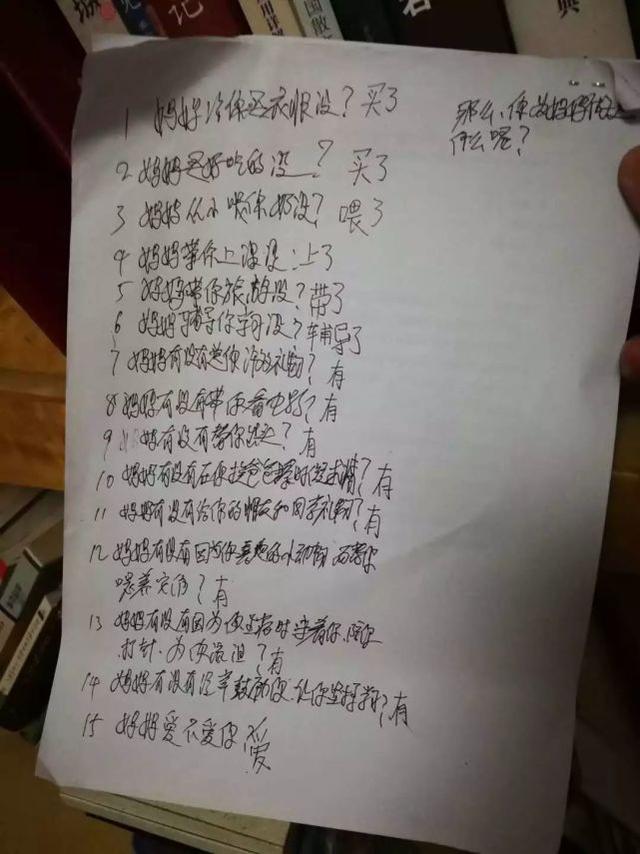 1 妈妈给你买衣服没？买了
2 妈妈买好吃的没？买了
3 妈妈从小喂你奶没？喂了
4 妈妈带你上课没：上了
5 妈妈带你旅游没？带了
6 妈妈辅导你学习没？辅导了
7 妈妈有没有送你礼物？有
8 妈妈有没有带你看电影？有
9 妈妈有没有替你？有
10 妈妈有没有在你挨爸爸揍时候求情？有
11 妈妈有没有给你的朋友和同学礼物？有
12 妈妈有没有因为你喜爱的小动物而替你
喂养它们？有
13 妈妈有没有因为你生病时守着你、陪你
打针、为你流泪？有
14 妈妈有没有经常鼓励你、让你坚持？有
15 妈妈爱不爱你 爱
那么、你为妈妈做过
什么呢？
记
典